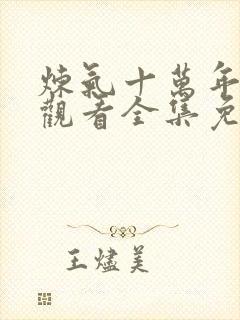 煉氣十萬年
觀看全集免
王燼美